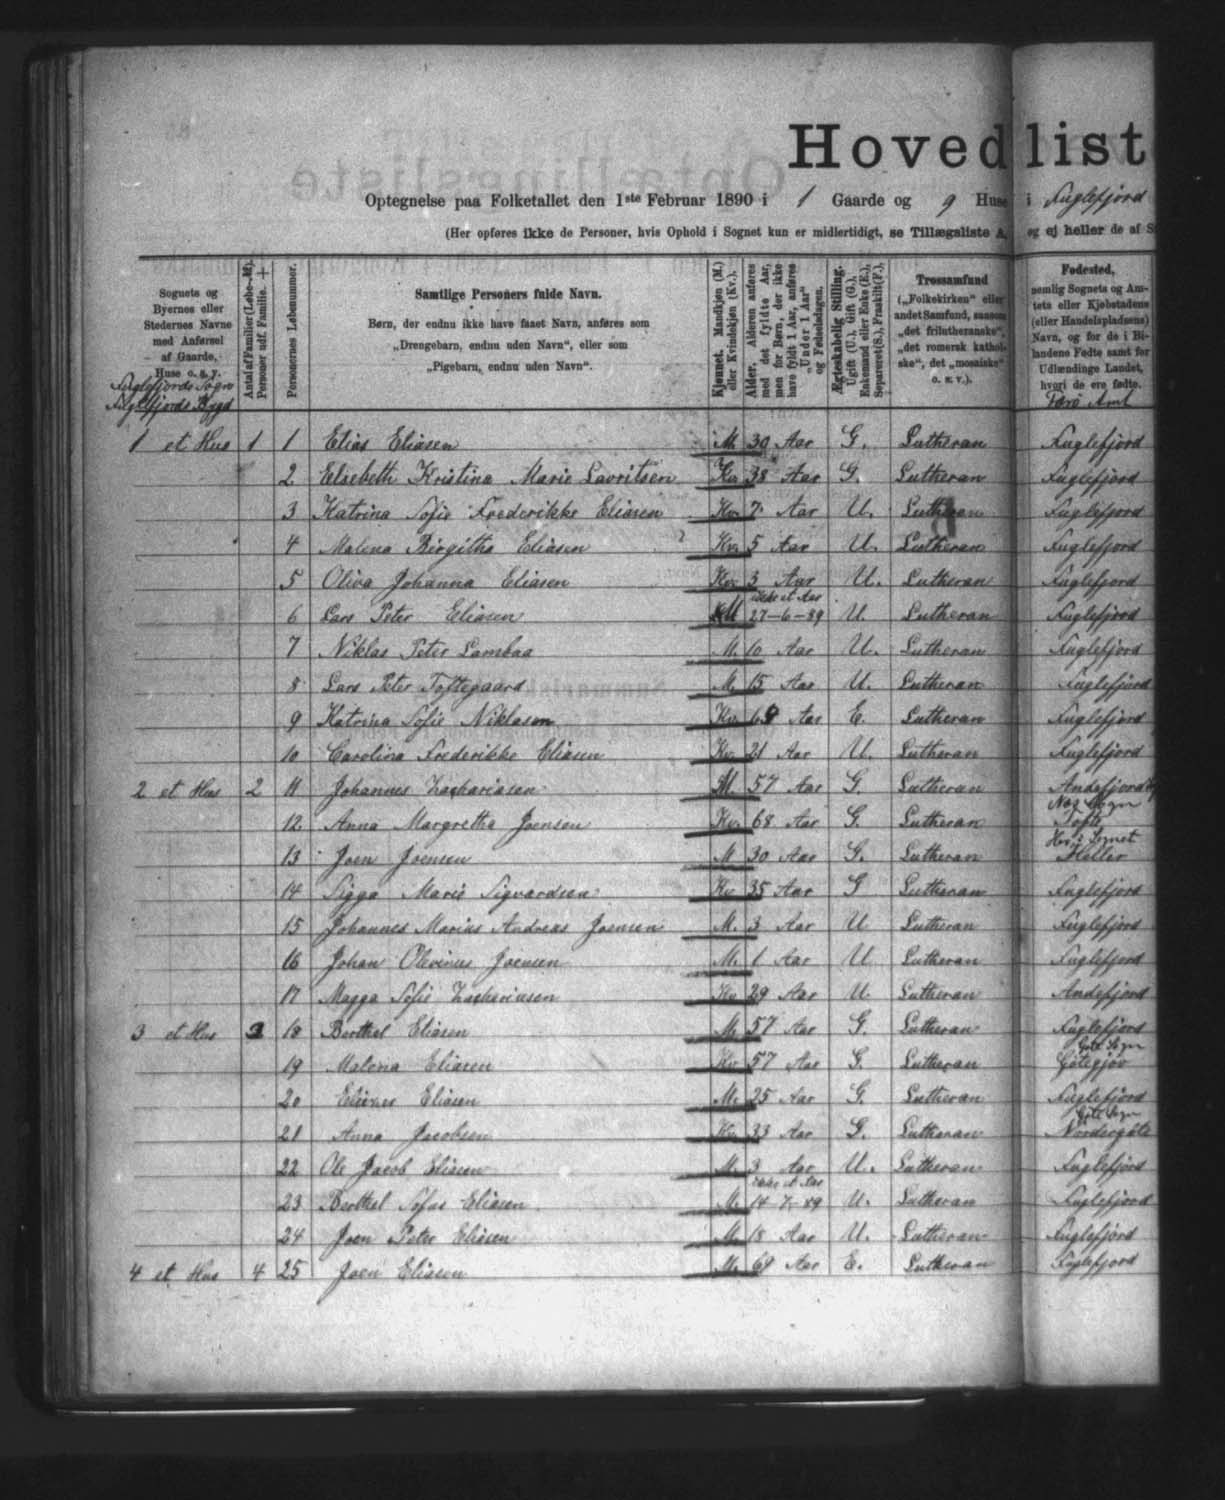 Hovedlist
Optegnelse paa Folketallet den 1ste Februar 1890 i 1 Gaarde og 9 Huse i Fuglefjord
(Her opføres ikke de Personer, hvis Ophold i Sognet kun er midlertidigt, se Tillægsliste A, og ej heller de af S
Sognets og Byernes eller Stedernes Navne med Anførsel af Gaarde, Huse o. s. v.
Antal af Familier (Løbe-№). Personer udf. Familie. +
Personernes Løbenummer.
Samtlige Personers fulde Navn.
Børn, der endnu ikke have faaet Navn, anføres som
„Drengebarn, endnu uden Navn“, eller som
„Pigebarn, endnu uden Navn“.
Kjønnet. Mandkjøn (M.) eller Kvindekjøn (Kv.).
Alder. Alderen anføres med det fyldte Aar, men for Børn, der ikke have fyldt 1 Aar, anføres „Under 1 Aar“ og Fødselsdagen.
Ægteskabelig Stilling. Ugift (U.), Gift (G.), Enkemand eller Enke (E.), Separeret (S.), Fraskilt (F.).
Trossamfund
(„Folkekirken“ eller andet Samfund, saasom „det frilutheranske“, „det romersk katholske“, det „mosaiske“ o. s. v.).
Fødested,
nemlig Sognets og Amtets eller Kjøbstadens (eller Handelspladsens) Navn, og for de i Bilandene Fødte samt for Udlændinge Landet, hvori de ere fødte.
Fuglefjords Sogn
Fuglefjords Bygd
Færø Amt
1 et Hus 1 1 Elias Eliasen M. 30 Aar G. Lutheran Fuglefjord
2 Elsebeth Kristina Marie Lavritsen Kv. 38 Aar G. Lutheran Fuglefjord
3 Katrina Sofie Frederikke Eliasen Kv. 7 Aar U. Lutheran Fuglefjord
4 Malena Birgitha Eliasen Kv. 5 Aar U. Lutheran Fuglefjord
5 Oliva Johanna Eliasen Kv. 3 Aar U. Lutheran Fuglefjord
6 Lars Peter Eliasen M 27-6-89 U. Lutheran Fuglefjord
7 Niklas Peter Lambaa M. 10 Aar U. Lutheran Fuglefjord
8 Lars Peter Toftegaard M. 15 Aar U. Lutheran Fuglefjord
9 Katrina Sofie Niklasen Kv. Aar E. Lutheran Fuglefjord
10 Carolina Frederikke Eliasen Kv. 21 Aar U. Lutheran Fuglefjord
2 et Hus 2 11 Johannes Zachariasen M. 57 Aar G. Lutheran Andefjord
12 Anna Margretha Joensen Kv. 68 Aar G. Lutheran Næs Sogn Tofte
13 Joen Joensen M 30 Aar G. Lutheran Her i Sognet Heller
14 Sigga Marie Sigvardsen Kv 35 Aar G Lutheran Fuglefjord
15 Johannes Marius Andreas Joensen M. 3 Aar U Lutheran Fuglefjord
16 Johan Olevinus Joensen M. 1 Aar U Lutheran Fuglefjord
17 Magga Sofie Zachariasen Kv 29 Aar U. Lutheran Andefjord
3 et Hus 3 18 Berthel Eliasen M. 57 Aar G. Lutheran Fuglefjord
19 Malena Eliasen Kv 57 Aar G. Lutheran Gøte Sogn Gøtegjov
20 Eliasen M. 25 Aar G. Lutheran Fuglefjord
21 Anna Jacobsen Kv. 33 Aar G. Lutheran Gøte Sogn Nordregøte
22 Ole Jacob Eliasen M. 3 Aar U. Lutheran Fuglefjord
23 Berthel Sofus Eliasen M. 14-7-89 U. Lutheran Fuglefjord
24 Joen Peter Eliasen M. 18 Aar U. Lutheran Fuglefjord
4 et Hus 4 25 Joen Eliasen M. 69 Aar E. Lutheran Fuglefjord